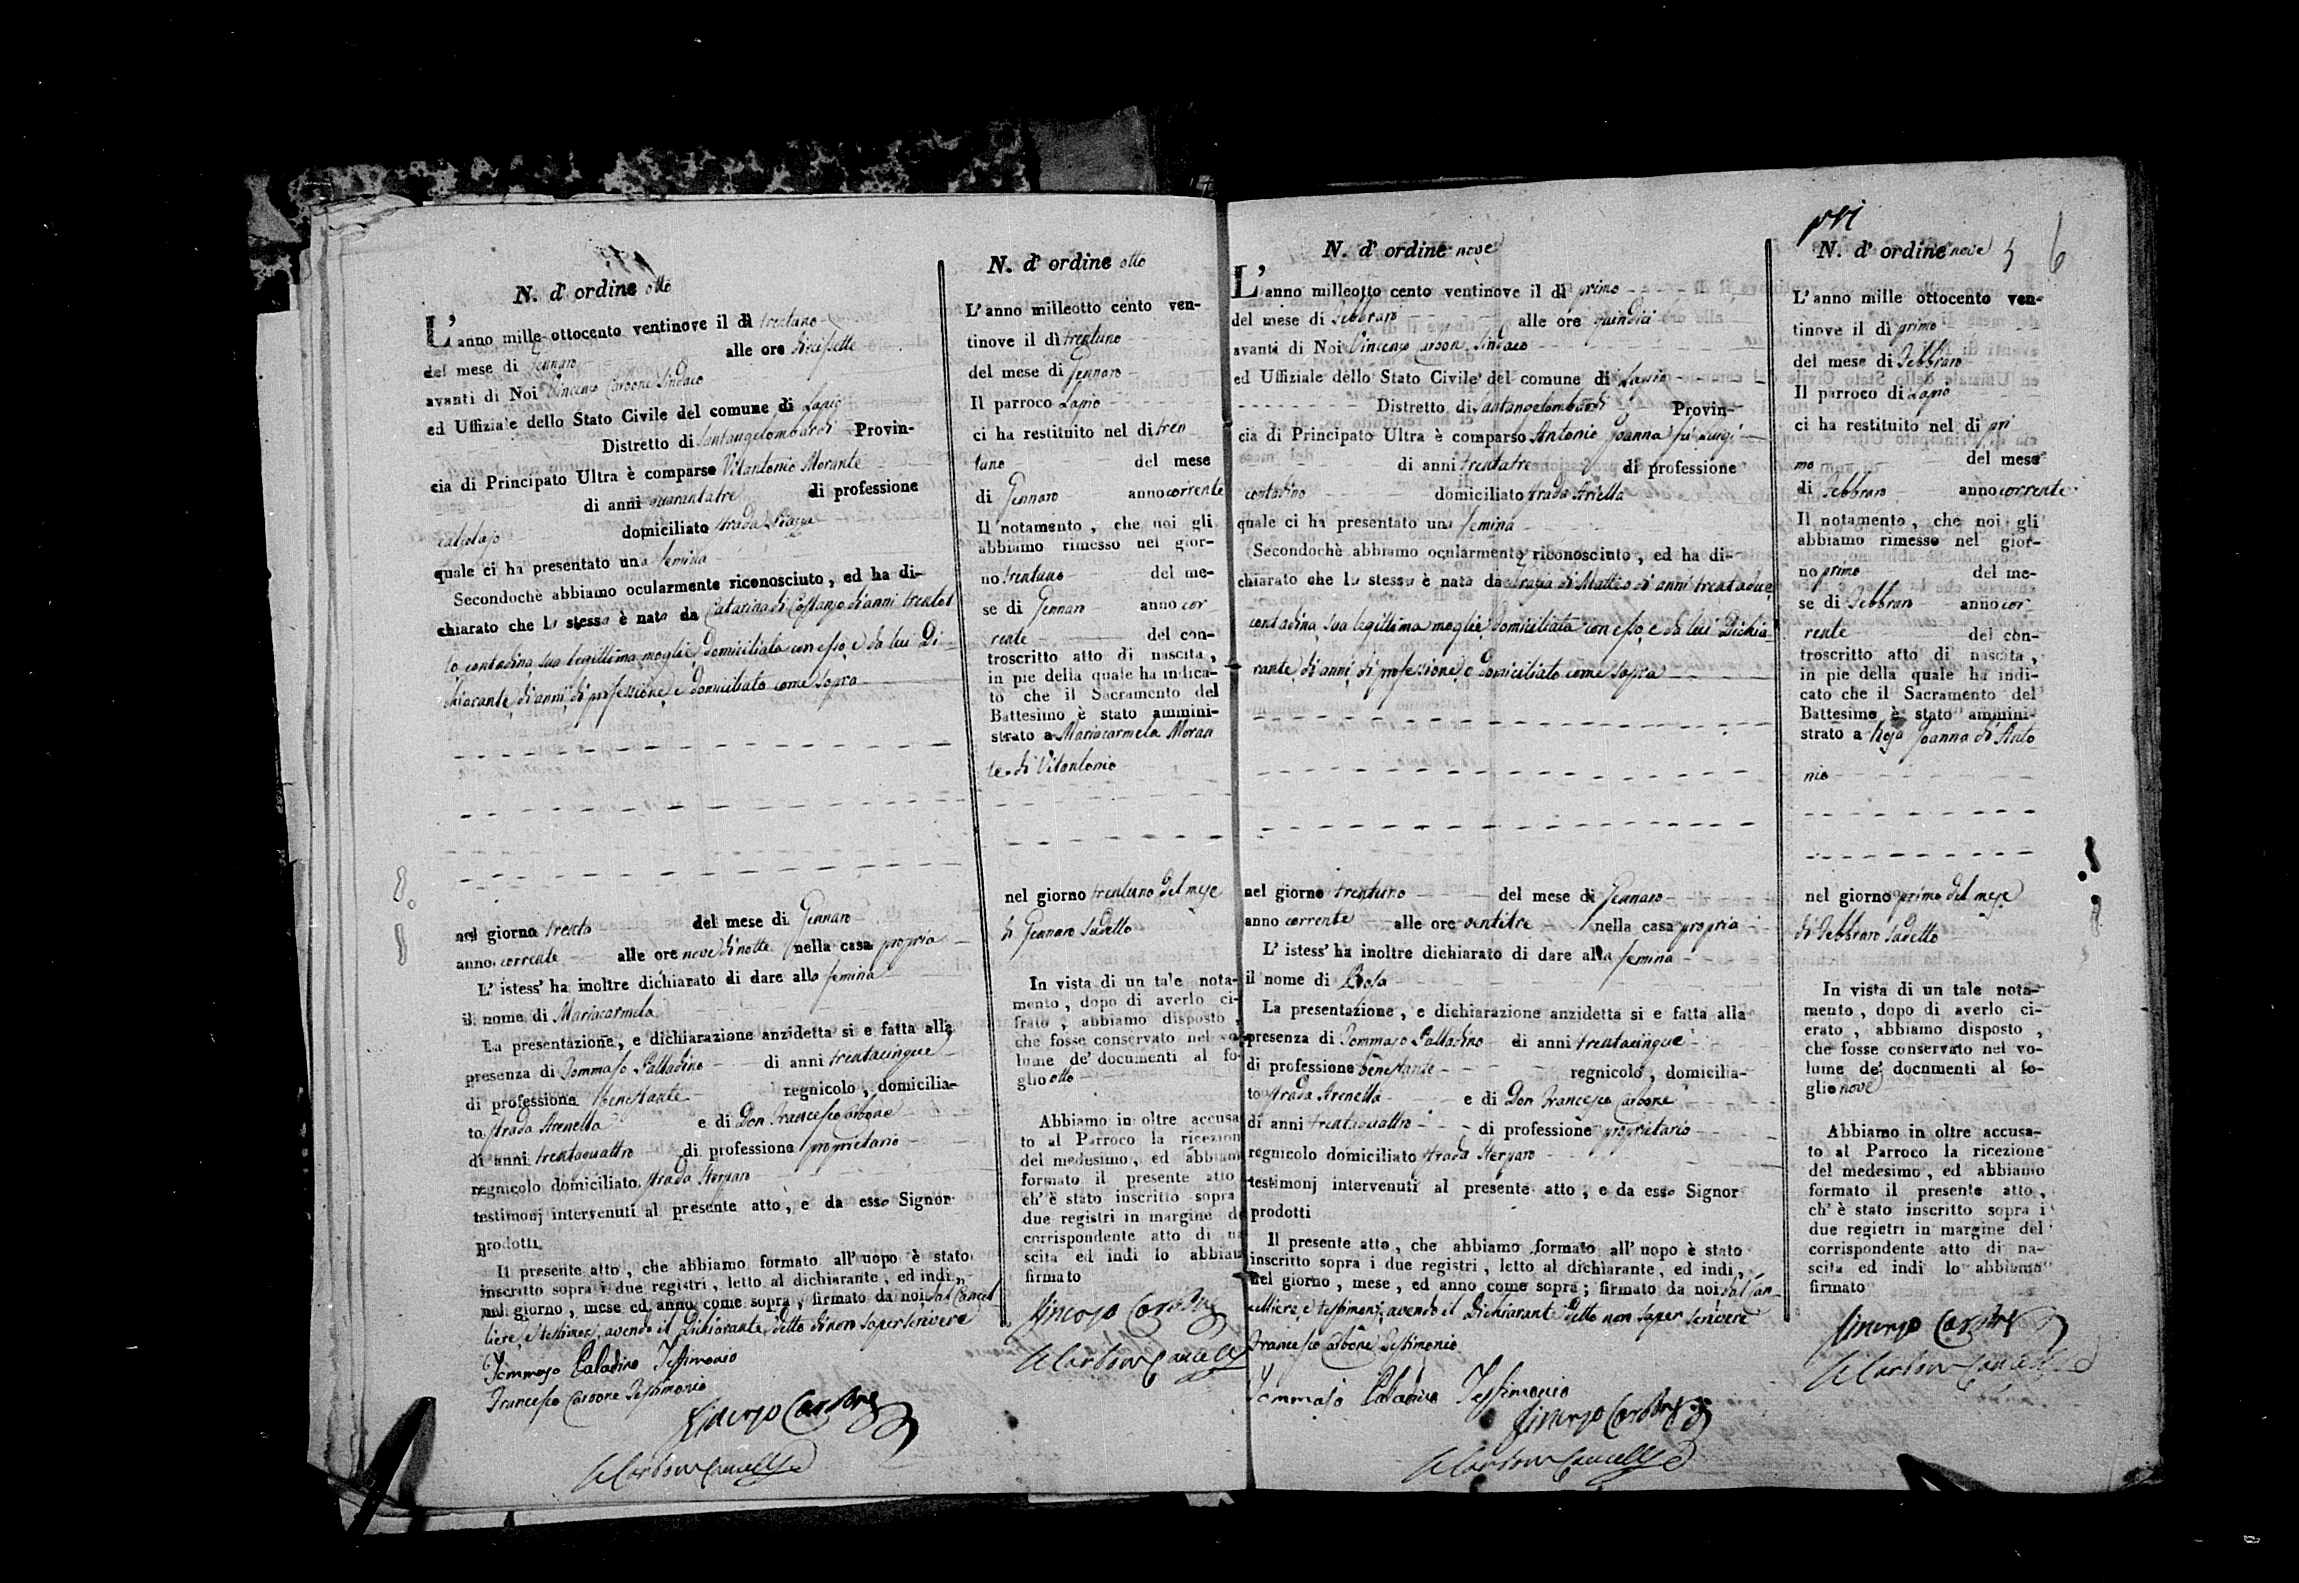 N. d' ordine otto
L' anno mille ottocento ventinove il dì trentuno
del mese di Gennaro alle ore diecisette
avanti di Noi Vincenzo Carbone Sindaco
ed Uffiziale dello Stato Civile del comune di Lapio
Distretto di Santangelombardi Provin-
cia di Principato Ultra è comparso Vitantonio Morante
di anni quarantatre di professione
calzolajo domiciliato strada Piazza
quale ci ha presentato una femina
Secondochè abbiamo ocularmente riconosciuto, ed ha di-
chiarato che la stessa è nata da Catarina di Costanzo di anni trentot
to contadina sua legittima moglie domiciliata con esso e da lui Di
chiarante di anni di professione e domiciliato come sopra
nel giorno trenta del mese di Gennaro
anno corrente alle ore nove di notte nella casa propria
L' istess' ha inoltre dichiarato di dare alla femina
il nome di Mariacarmela
La presentazione, e dichiarazione anzidetta si e fatta alla
presenza di Tommaso Palladino di anni trentacinque
di professione benestante regnicolo, domicilia-
to strada Arenella e di Don Francesco Carbone
di anni trentaquattro di professione proprietario
regnicolo domiciliato strada
testimonj intervenuti al presente atto, e da esso Signor
prodotti
Il presente atto, che abbiamo formato all' uopo è stato
inscritto sopra i due registri, letto al dichiarante, ed indi,
nel giorno, mese, ed anno come sopra, firmato da noi dal Cancel
liere, e testimonj, avendo il Dichiarante detto di non saper scrivere
Tommaso Paladino Testimonio
Francesco Carbone Testimonio
Vincenzo Carbone
N. d' ordine otto
L' anno milleotto cento ven-
tinove il dì trentuno
del mese di Gennaro
Il parroco Lapio
ci ha restituito nel dì tren
tuno del mese
di Gennaro anno corrente
Il notamento, che noi gli
abbiamo rimesso nel gior-
no trentuno del me-
se di Gennaro anno cor
rente del con-
troscritto atto di nascita,
in piè della quale ha indica-
to che il Sacramento del
Battesimo è stato ammini-
strato a Mariacarmela Moran
te di Vitantonio
nel giorno trentuno del mese
di Gennaro sudetto
In vista di un tale nota-
mento, dopo di averlo ci-
frato, abbiamo disposto,
che fosse conservato nel vo-
lume de' documenti al fo-
glio otto
Abbiamo in oltre accusa
to al Parroco la ricezion
del medesimo, ed abbiam
formato il presente atto
ch' è stato inscritto sopra
due registri in margine de
corrispondente atto di na
scita ed indi lo abbiam
firmato
Vincenzo Carbone
N. d' ordine nove
L' anno milleotto cento ventinove il dì primo
del mese di Febbraro alle ore quindici
avanti di Noi Vincenzo Carbone Sindaco
ed Uffiziale dello Stato Civile del comune di Lapio
Distretto di Santangelombardi Provin-
cia di Principato Ultra è comparso Antonio Joanna fu Luigi
di anni trentatre di professione
contadino domiciliato strada Ariella
quale ci ha presentato una femina
Secondochè abbiamo ocularmente riconosciuto, ed ha di-
chiarato che la stessa è nata da Grazia di Matteo di anni trentadue
contadina sua legittima moglie domiciliata con esso e da lui Dichia
rante di anni di professione e domiciliato come sopra
nel giorno trentuno del mese di Gennaro
anno corrente alle ore ventitre nella casa propria
L' istess' ha inoltre dichiarato di dare alla femina
il nome di Rosa
La presentazione, e dichiarazione anzidetta si e fatta alla
presenza di Tommaso Palladino di anni trentacinque
di professione benestante regnicolo, domicilia-
to strada Arenella e di Don Francesco Carbone
di anni trentaquattro di professione proprietario
regnicolo domiciliato strada
testimonj intervenuti al presente atto, e da esso Signor
prodotti
Il presente atto, che abbiamo formato all' uopo è stato
inscritto sopra i due registri, letto al dichiarante, ed indi,
nel giorno, mese, ed anno come sopra; firmato da noi dal Can-
celliere, e testimonj, avendo il Dichiarante detto non saper scrivere
Francesco Carbone Testimonio
Tommaso Paladino Testimonio
Vincenzo Carbone
N. d' ordine nove 5 6
L' anno mille ottocento ven-
tinove il dì primo
del mese di Febbraro
Il parroco di Lapio
ci ha restituito nel dì pri
mo del mese
di Febbraro anno corrente
Il notamento, che noi gli
abbiamo rimesso nel gior-
no primo del me-
se di Febbraro anno cor-
rente del con-
troscritto atto di nascita,
in piè della quale ha indi-
cato che il Sacramento del
Battesimo è stato ammini-
strato a Rosa Joanna di Anto
nio
nel giorno primo del mese
di Febbraro sudetto
In vista di un tale nota-
mento, dopo di averlo ci-
erato, abbiamo disposto,
che fosse conservato nel vo-
lume de' documenti al fo-
glio nove
Abbiamo in oltre accusa-
to al Parroco la ricezione
del medesimo, ed abbiamo
formato il presente atto,
ch' è stato inscritto sopra i
due registri in margine del
corrispondente atto di na-
scita ed indi lo abbiamo
firmato
Vincenzo Carbone